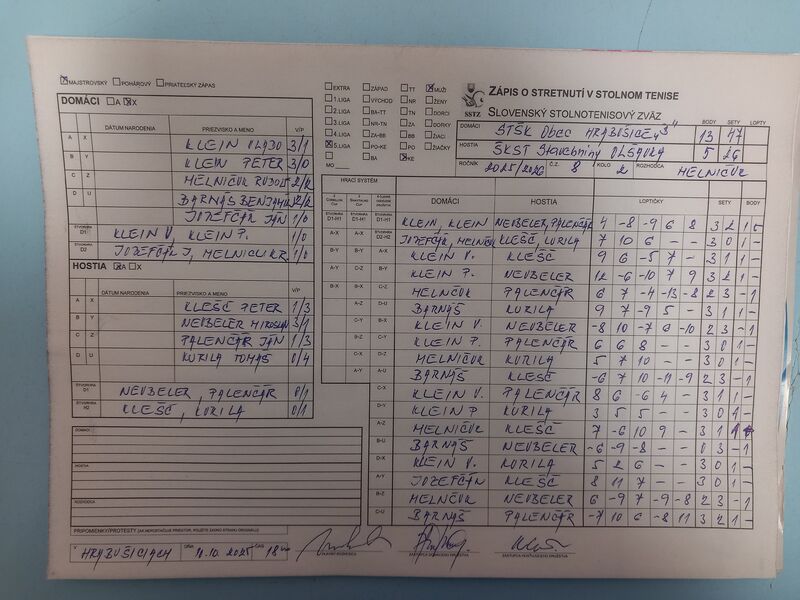 MAJSTROVSKÝ POHÁROVÝ PRIATEĽSKÝ ZÁPAS
DOMÁCI A X
DÁTUM NARODENIA PRIEZVISKO A MENO V/P
A X KLEIN VLADO 3/1
B Y KLEIN PETER 3/0
C Z MELNIČUK RUDOLF 2/2
D U BARNÁŠ BENJAMÍN 2/2
JOZEFČÁK JÁN 1/0
ŠTVORHRA D1 KLEIN V, KLEIN P. 1/0
ŠTVORHRA D2 JOZEFČÁK J, MELNIČUK R. 1/0
HOSTIA A X
DÁTUM NARODENIA PRIEZVISKO A MENO V/P
A X KLEŠČ PETER 1/3
B Y NEUBELER MIROSLAV 3/1
C Z PALENČÁR JÁN 1/3
D U KURILA TOMÁŠ 0/4
ŠTVORHRA D1 NEUBELER, PALENČÁR 0/1
ŠTVORHRA H2 KLEŠČ, KURILA 0/1
DOMÁCI
HOSTIA
ROZHODCA
PRIPOMIENKY/PROTESTY
V HRABUŠICIACH DŇA 11.10.2025 ČAS 18
EXTRA ZÁPAD TT MUŽI
1.LIGA VÝCHOD NR ŽENY
2.LIGA BA-TT TN DORCI
3.LIGA NR-TN ZA DORKY
4.LIGA ZA-BB BB ŽIACI
5.LIGA PO-KE PO ŽIAČKY
MO BA KE
ZÁPIS O STRETNUTÍ V STOLNOM TENISE
SSTZ SLOVENSKÝ STOLNOTENISOVÝ ZVÄZ
BODY SETY LOPTY
DOMÁCI STŠK Obec HRABUŠICE "B" 13 47
HOSTIA ŠKST Stavebniny OLSAVKA 5 26
ROČNÍK 2025/2026 Č.Z. 8 KOLO 2 ROZHODCA MELNIČUK
HRACÍ SYSTÉM DOMÁCI HOSTIA LOPTIČKY SETY BODY
KLEIN, KLEIN NEUBELER, PALENČÁR 4 -8 -9 6 8 3 2 1 -
JOZEFČÁK, MELNIČUK KLEŠČ, KURILA 7 10 6 - - 3 0 1 -
KLEIN V. KLEŠČ 9 6 -5 7 - 3 1 1 -
KLEIN P. NEUBELER 12 -6 -10 7 9 3 2 1 -
MELNIČUK PALENČÁR 6 7 -4 -13 -8 2 3 - 1
BARNÁŠ KURILA 9 7 -9 5 - 3 1 1 -
KLEIN V. NEUBELER -8 10 -7 6 -10 2 3 - 1
KLEIN P. PALENČÁR 6 6 8 - - 3 0 1 -
MELNIČUK KURILA 5 7 10 - - 3 0 1 -
BARNÁŠ KLEŠČ -6 7 10 -11 -9 2 3 - 1
KLEIN V. PALENČÁR 8 6 -6 4 - 3 1 1 -
KLEIN P KURILA 3 5 5 - - 3 0 1 -
MELNIČUK KLEŠČ 7 -6 10 9 - 3 1 1
BARNÁŠ NEUBELER -6 -9 -8 - - 0 3 - 1
KLEIN V. KURILA 5 2 6 - - 3 0 1 -
JOZEFČÁK KLEŠČ 8 11 7 - - 3 0 1 -
MELNIČUK NEUBELER 6 -9 7 -9 -8 2 3 - 1
BARNÁŠ PALENČÁR -7 10 6 -8 11 3 2 1 -